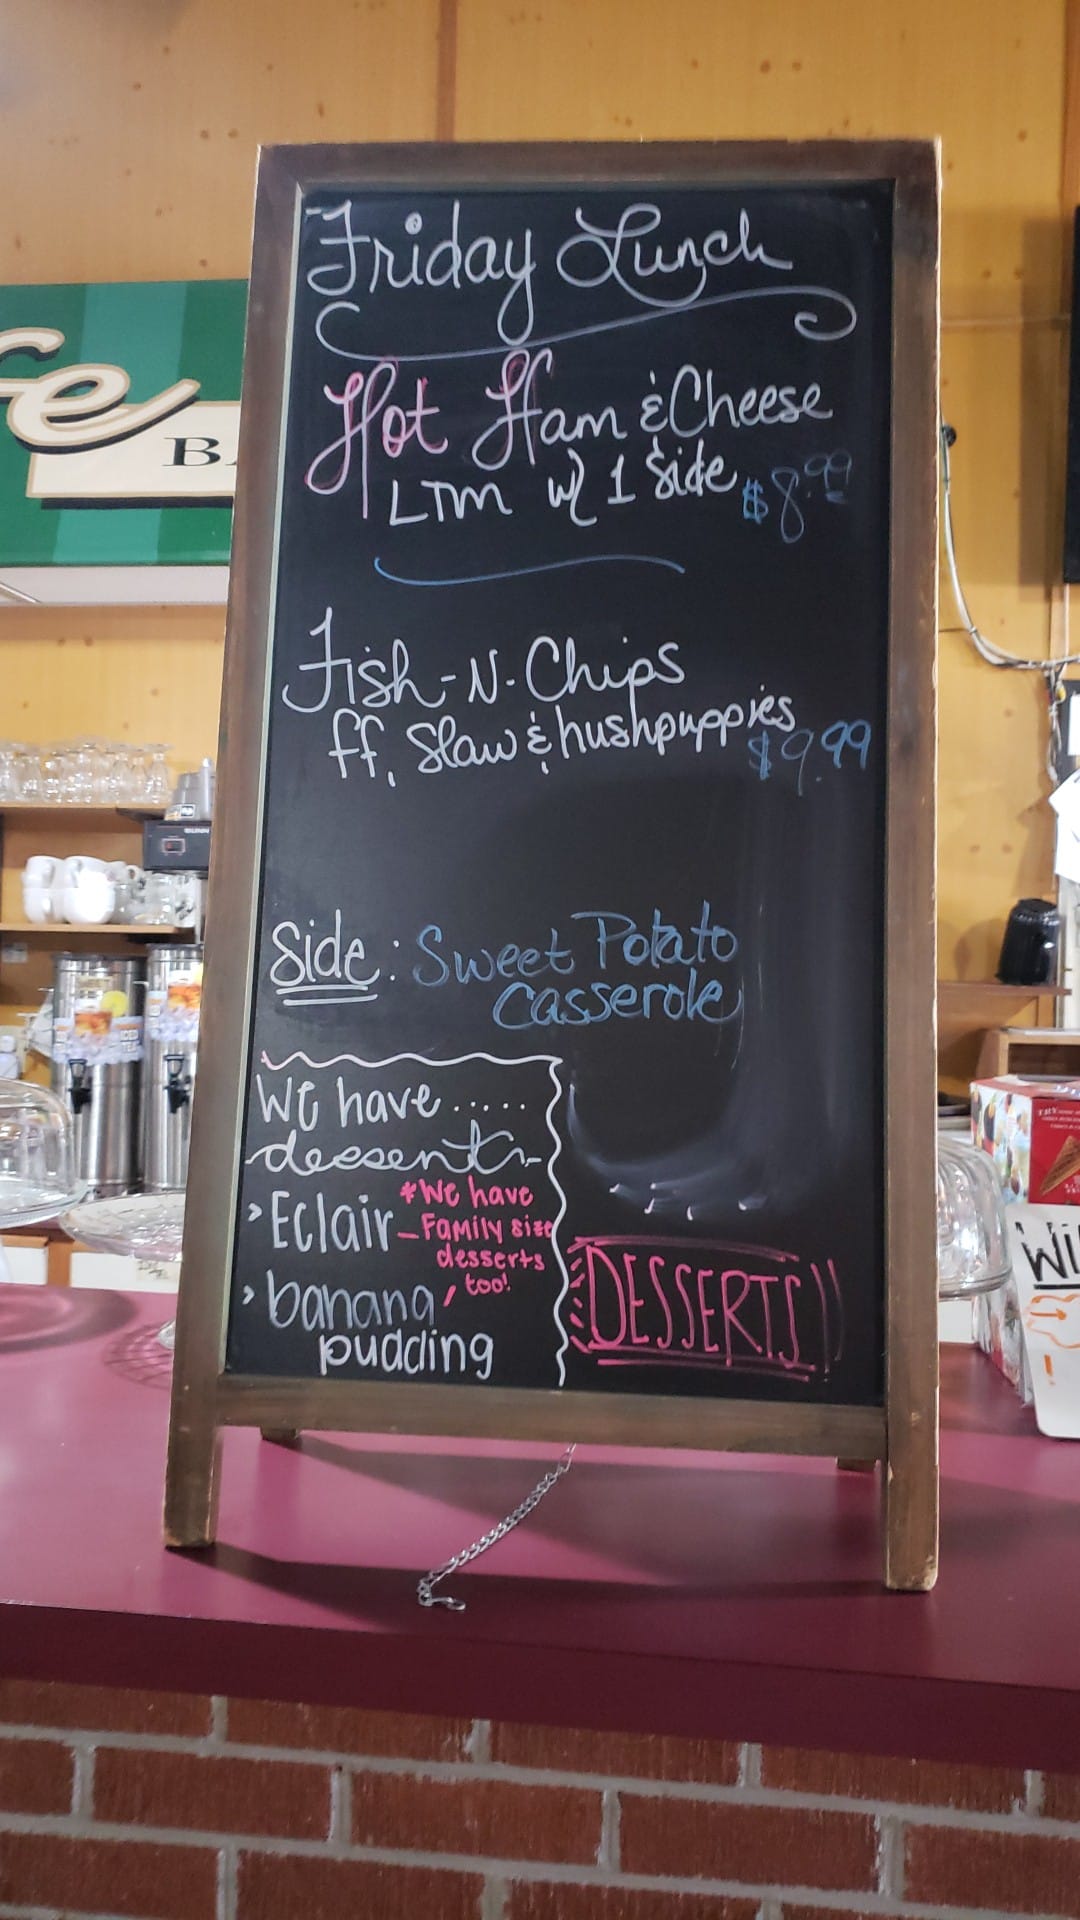 Friday Lunch
Hot Ham & Cheese
LTM w/ 1 Side $8.99
Fish-N-Chips
ff, Slaw & hushpuppies
$9.99
Side: Sweet Potato
Casserole
We have.....
dessert
>Eclair
*We have
-Family size
desserts
too!
>banana
pudding
DESSERTS!!
fe
BA
BUNN
ICED
TEA
TRY
WI